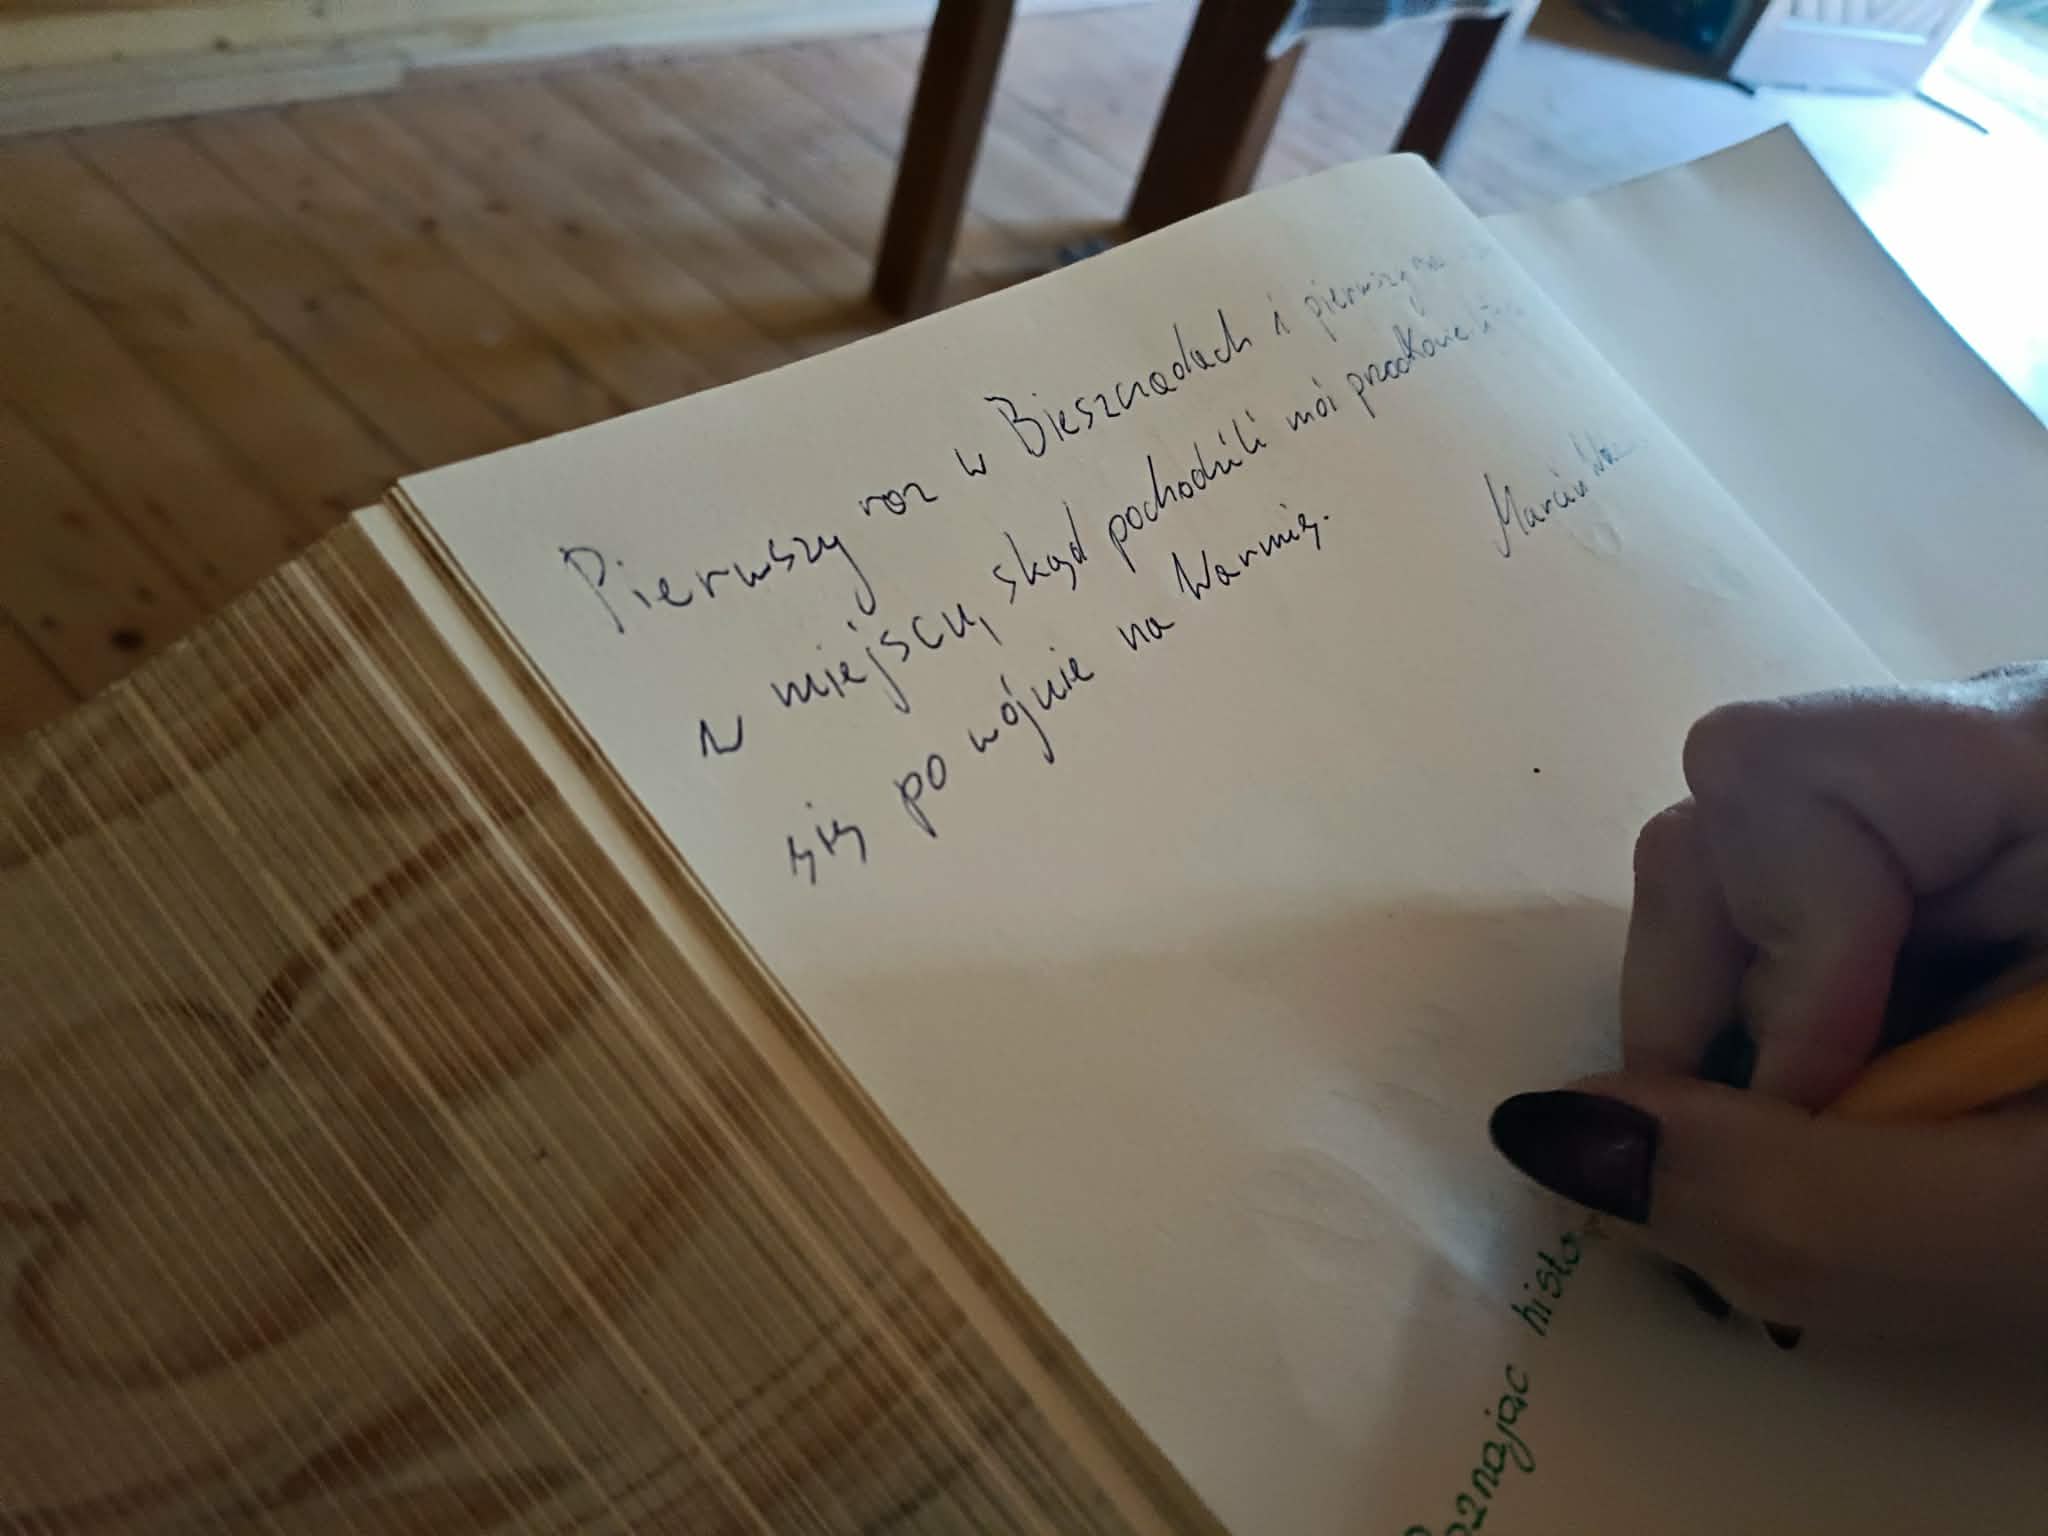 Pierwszy raz w Bieszczadach i pierwszy raz
w miejscu, skąd pochodzili moi przodkowie
się po wojnie na Warmię.
Marcin
Poznając histo